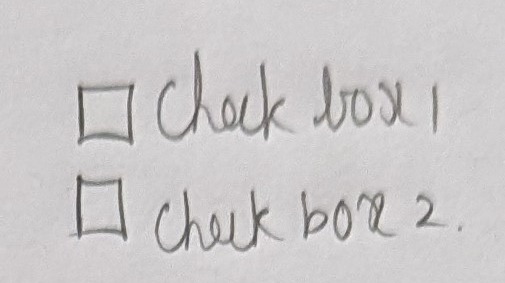 ☐ Check box 1
☐ Check box 2.